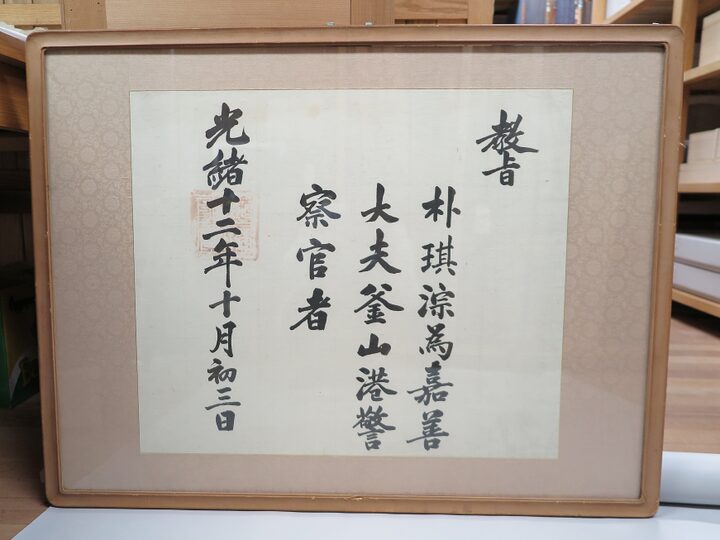 敎旨
朴琪淙為嘉善
大夫釜山港警
察官者
光緖十二年十月初三日